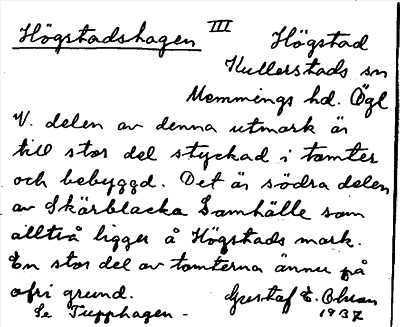 Högstadshagen III Högstad
Kullerstads sn
Memmings hd. Ögl
V. delen av denna utmark är
till stor del styckad i tomter
och bebyggd. Det är södra delen
av Skärblacka Samhälle som
alltså ligger å Högstads mark.
En stor del av tomterna ännu på
ofri grund. Gustaf E. Olsson
Se Tupphagen - 1937